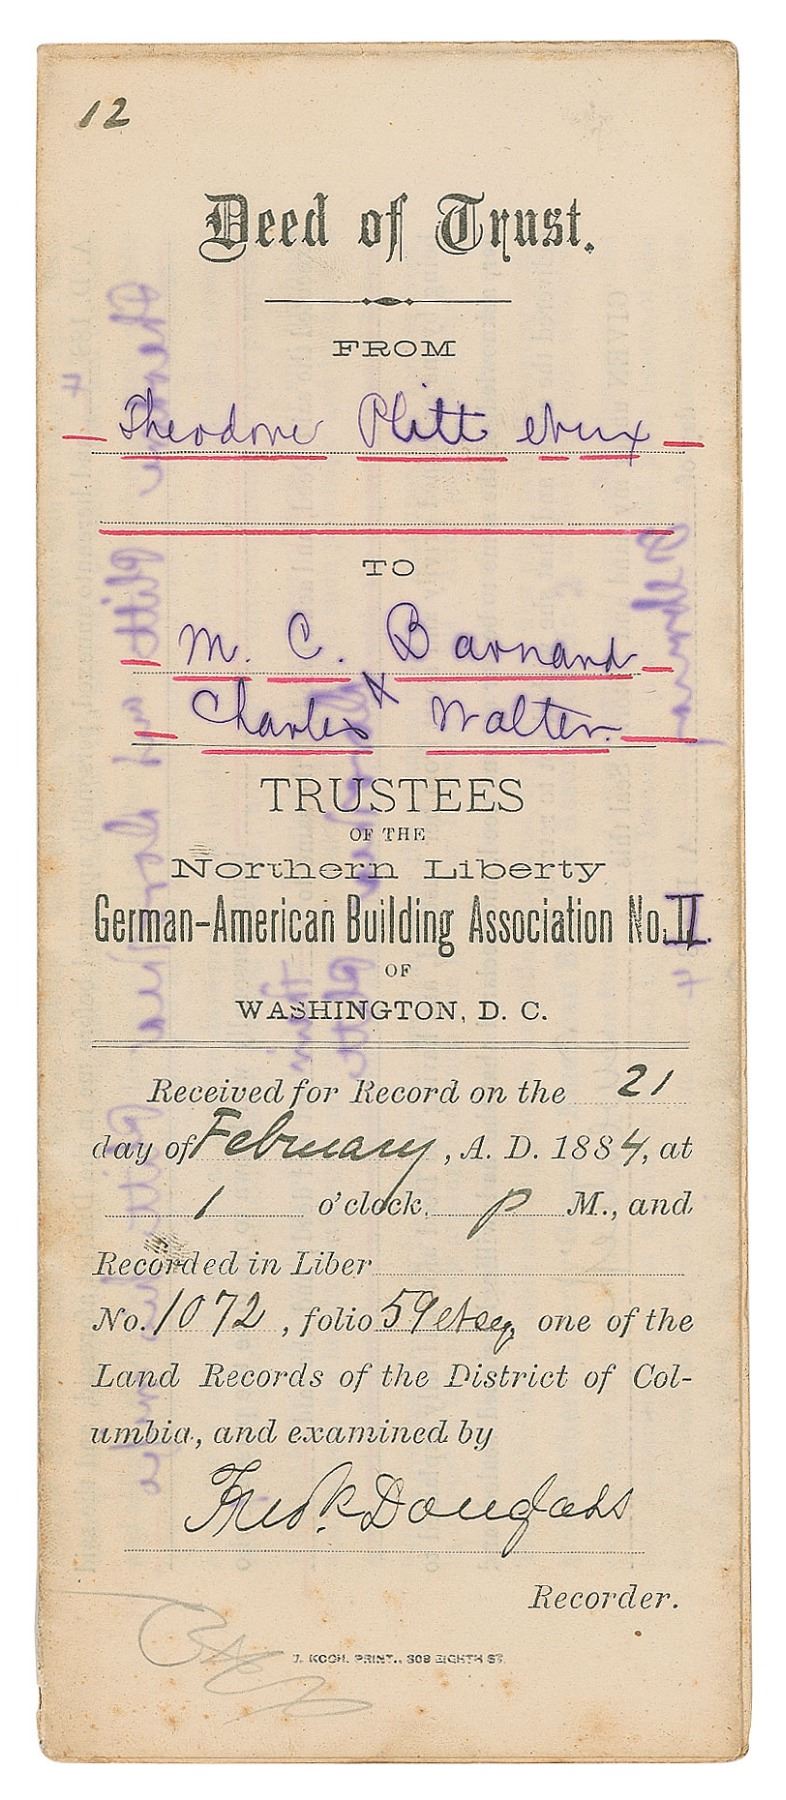 12
Deed of Trust.
FROM
Theodore Plitt et ux
TO
M. C. Barnard
& Charles Walter.
TRUSTEES
OF THE
Northern Liberty
German-American Building Association No. II.
OF
WASHINGTON, D. C.
Received for Record on the 21
day of February, A. D. 1884, at
1 o'clock, P M., and
Recorded in Liber
No. 1072, folio 59 et seq, one of the
Land Records of the District of Col-
umbia, and examined by
Fredk Douglass
Recorder.
J. KOCH. PRINT., 809 EIGHTH ST.